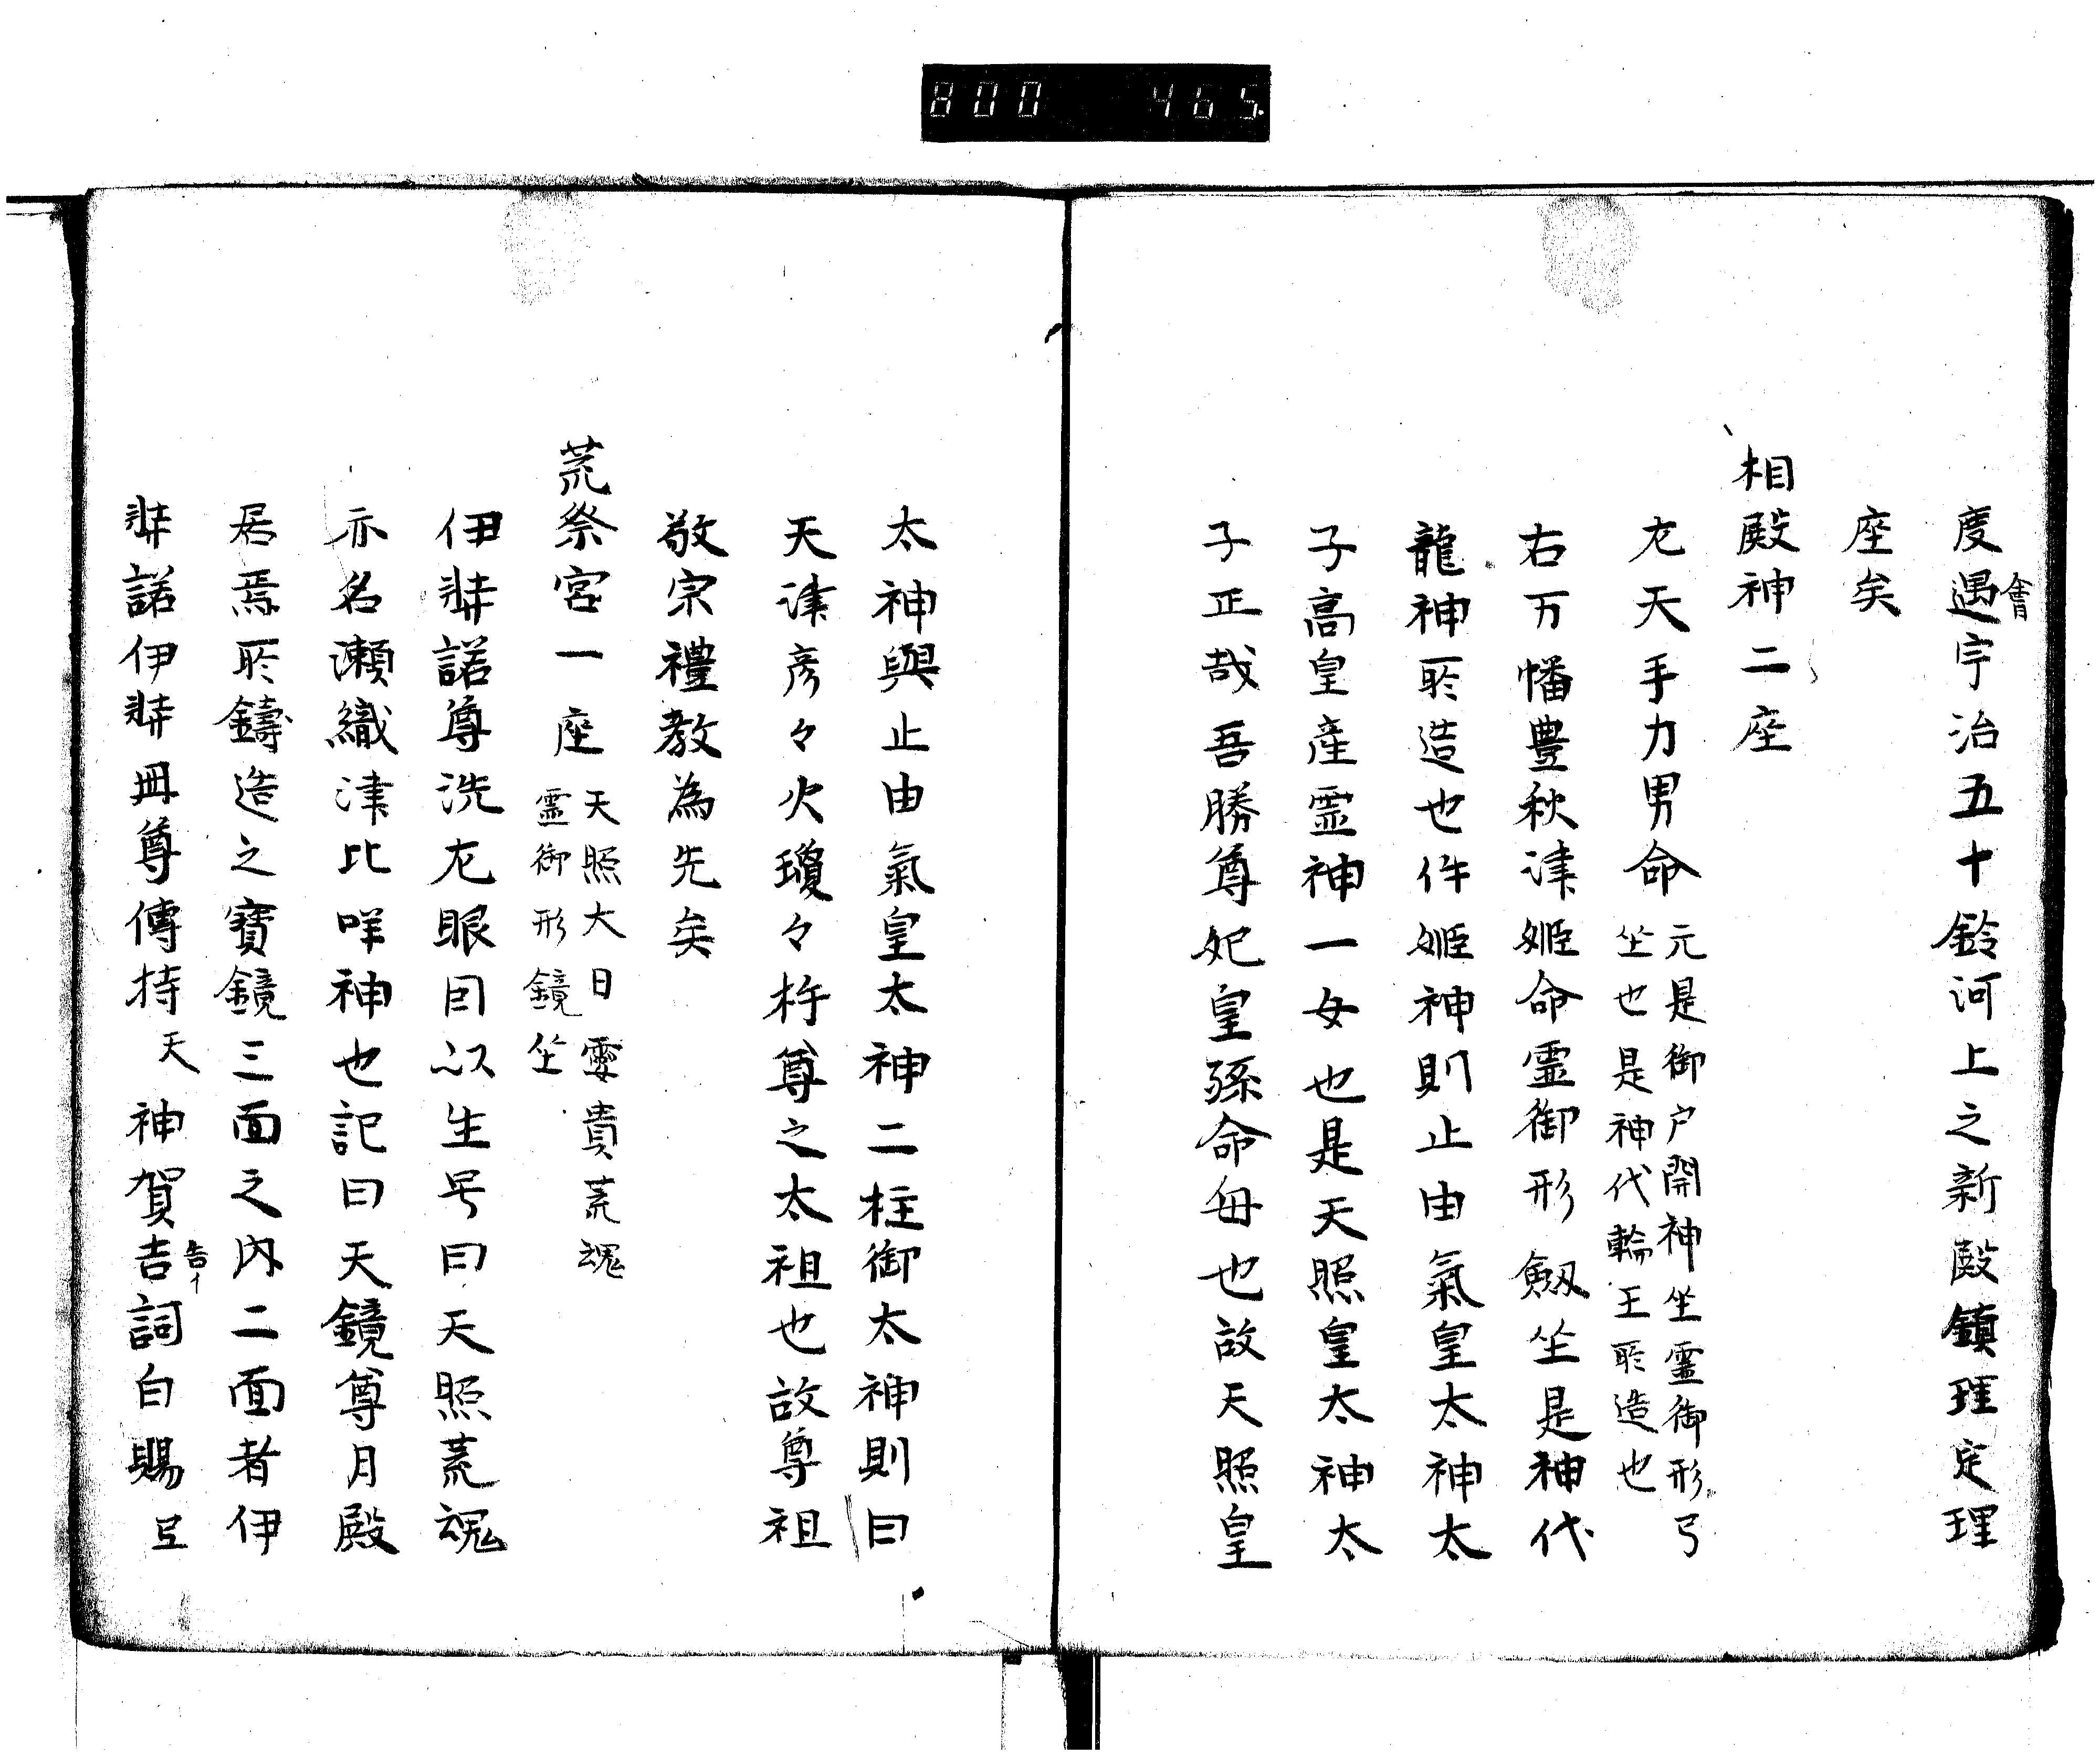 800 465
度遇宇治五十鈴河上之新殿鎮理定理
會
座矣
相殿神二座
左天手力男命
元是御戸開神坐霊御形弓
坐也是神代輪王所造也
右万幡豊秋津姫命霊御形剱坐是神代
龍神所造也件姫神則止由氣皇太神太
子高皇産霊神一女也是天照皇太神太
子正哉吾勝尊妃皇孫命母也故天照皇
太神與止由氣皇太神二柱御太神則曰
天津彦々火瓊々杵尊之太祖也故尊祖
敬宗禮教為先矣
荒祭宮一座
天照大日孁貴荒魂
霊御形鏡坐
伊弉諾尊洗左眼因以生号曰天照荒魂
亦名瀬織津比咩神也記曰天鏡尊月殿
居焉所鑄造之寶鏡三面之内二面者伊
弉諾伊弉冊尊傳持天神賀吉詞白賜
告イ